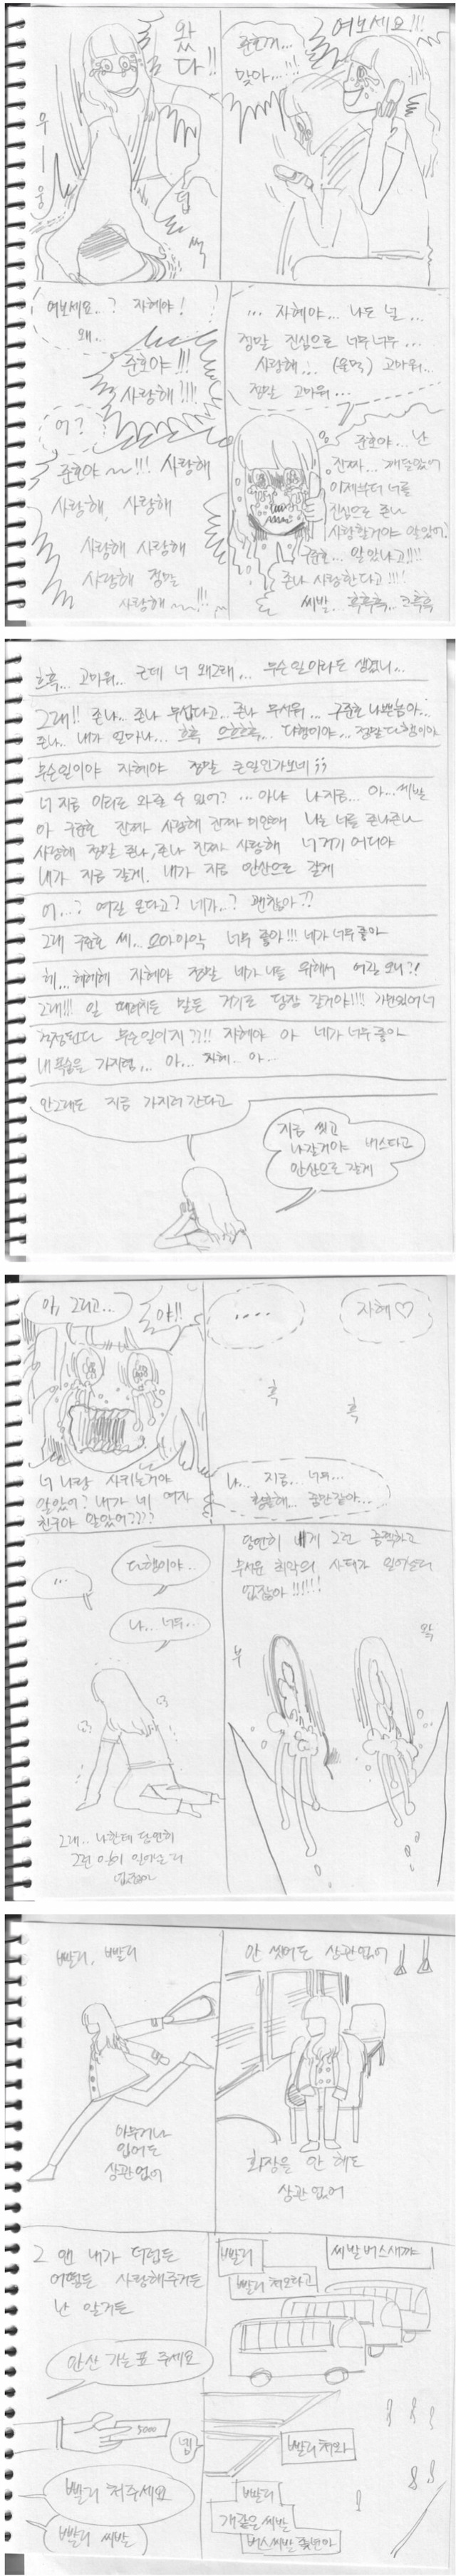 왔
다!!
우ㅡ웅
덥
썩
준호거...
맞아...!!
여보세요!!!
여보세요..? 자혜야!
왜..
준호야!!!
사랑해!!!!
어?
준호야~~!!! 사랑해
사랑해, 사랑해
사랑해 사랑해
사랑해 정말
사랑해~~!!!
... 자혜야... 나는 널...
정말 진심으로 너무너무...
사랑해... (울먹) 고마워...
정말 고마워...
준호야... 난
진짜... 깨달았어
이제부터 너를
진심으로 존나
사랑할거야 알았어.
구준호... 알았냐고!!!!
존나 사랑한다고!!!!
씨발... 흑흑흑.. 크흑흑
흐흑... 고마워.. 근데 너 왜그래... 무슨일이라도 생겼니...
그래!! 존나.. 존나 무섭다고... 존나 무서워... 구준호 나쁜놈아...
존나.. 내가 얼마나... 흐흑 으흐흐흑.. 다행이야... 정말다행이야
무슨일이야 자혜야 정말 큰일인가보네;;
너 지금 이리로 와줄 수 있어? ... 아냐 나지금... 아... 씨발
아 구준호 진짜 사랑해 진짜 미안해 나는 너를 존나존나
사랑해 정말 존나, 존나 진짜 사랑해 너 거기 어디야
내가 지금 갈게. 내가 지금 안산으로 갈게
어...? 여길 온다고? 네가..? 괜찮아??
그래 구준호 씨... 으아아악 너무 좋아!!! 네가 너무 좋아
헤... 헤헤헤 자혜야 정말 네가 나를 위해서 여길 오니?!
그래!!! 일 때려치든 말든 거기로 당장 갈거야!!!! 가만있어 너
걱정된다 무슨일이지??!! 자혜야 아 네가 너무 좋아
내 목숨을 가지렴... 아... 자혜.. 아..
안그래도 지금 가지러 간다고
지금 씻고
나갈거야 버스타고
안산으로 갈게
아, 그리고...
야!!
너 나랑 사귀는거야
알았어? 내가 네 여자
친구야 알았어????
....
자혜♡
흑
흑
나... 지금... 너무...
행복해... 꿈만같아...
...
다행이야..
나... 너무..
그래.. 나한테 당연히
그런 일이 일어날리
없잖아
당연히 내게 그런 끔찍하고
무서운 최악의 사태가 일어날리
없잖아!!!!!!
부
왁
빨리, 빨리
아무거나
입어도
상관없어
안 씻어도 상관없어
화장을 안 해도
상관없어
그 앤 내가 더럽든
어떻든 사랑해주거든
난 알거든
안산 가는표 주세요
5000
넵
빨리 쳐주세요
빨리 씨발
빨리
빨리 쳐오라고
씨발버스새꺄
빨리쳐와
빨리
개같은 씨발
버스씨발